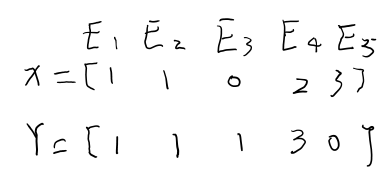 E1 E2 E3 E4 E5
X = [ 1 1 0 2 3 ]
Y = [ 1 1 1 3 0 ]